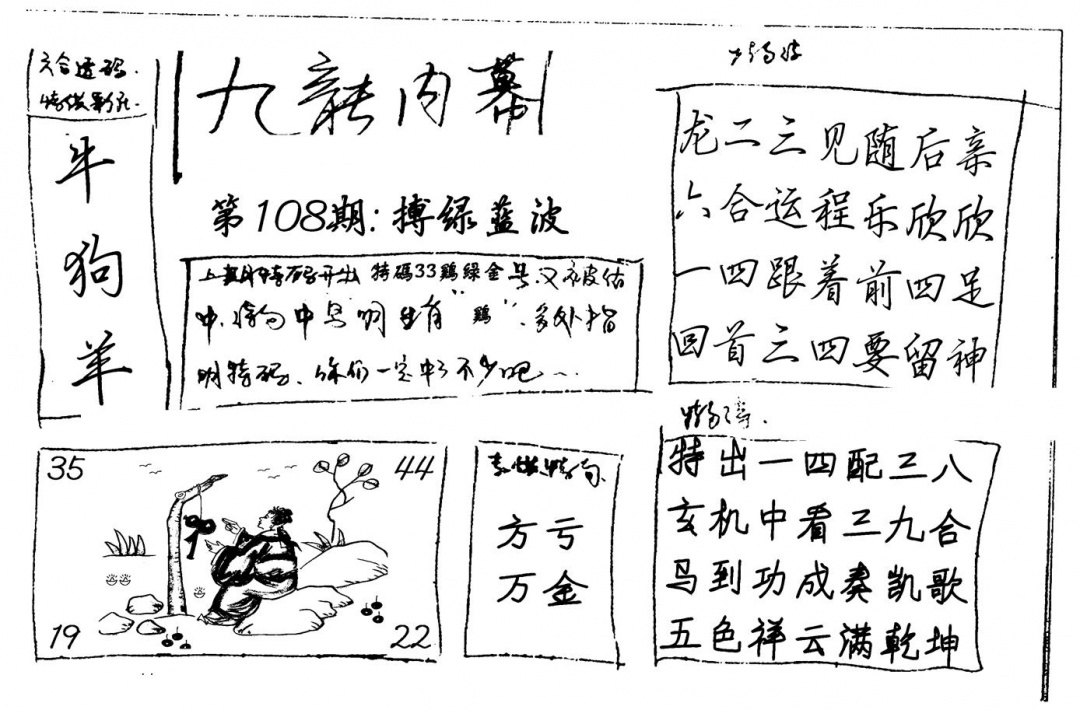 六合透码.
特供影讯.
牛
狗
羊
九龍内幕
第108期:搏绿蓝波
上期特码开出 特碼33鷄綠金号.又被估
中. 中 生肖"鷄".多处指
明特码、你们一定中了不少吧…
龙二三见随后亲
六合运程乐欣欣
一四跟着前四足
回首三四要留神
35
44
19
22
方亏
万金
特出一四配三八
玄机中看三九合
马到功成奏凯歌
五色祥云满乾坤